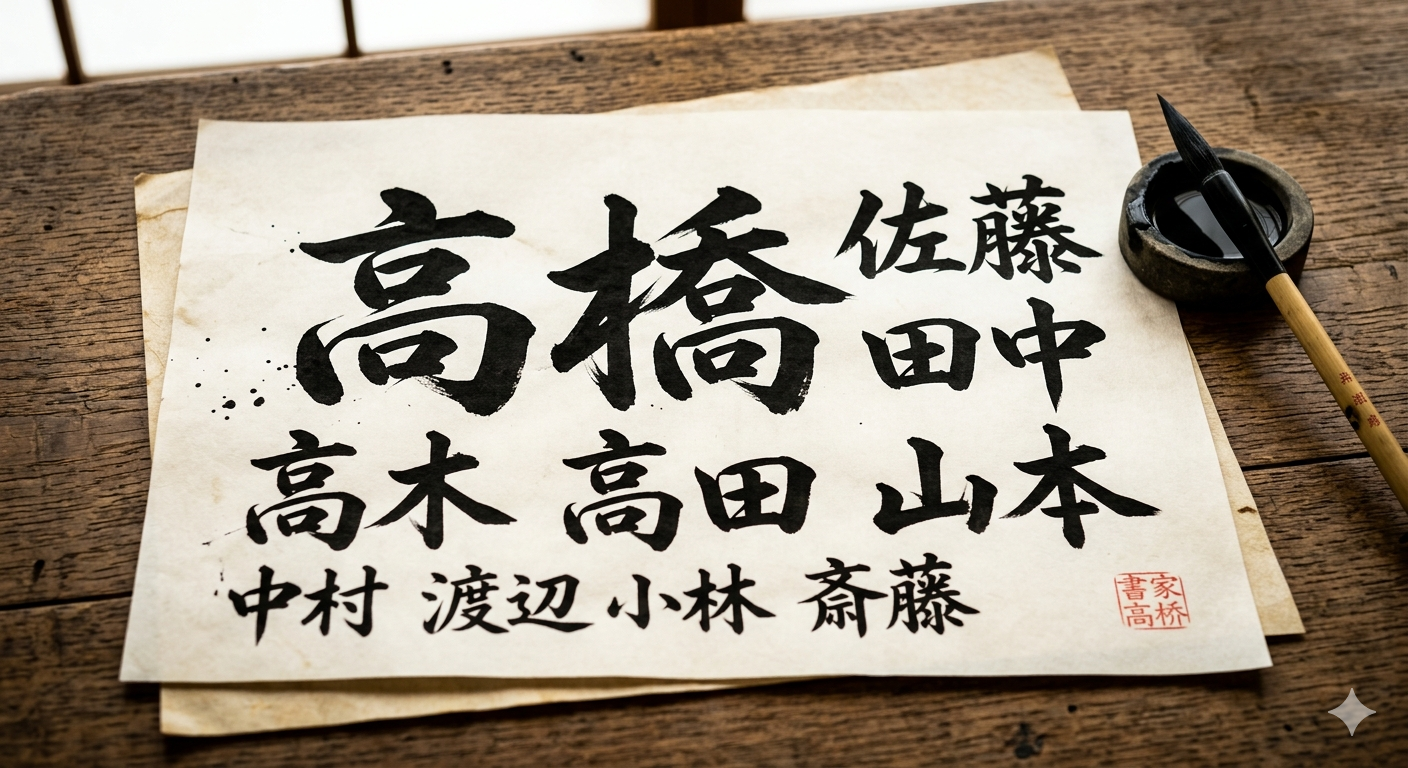 高橋 佐藤
田中
高木 高田 山本
中村 渡辺 小林 斎藤
書家
高桥